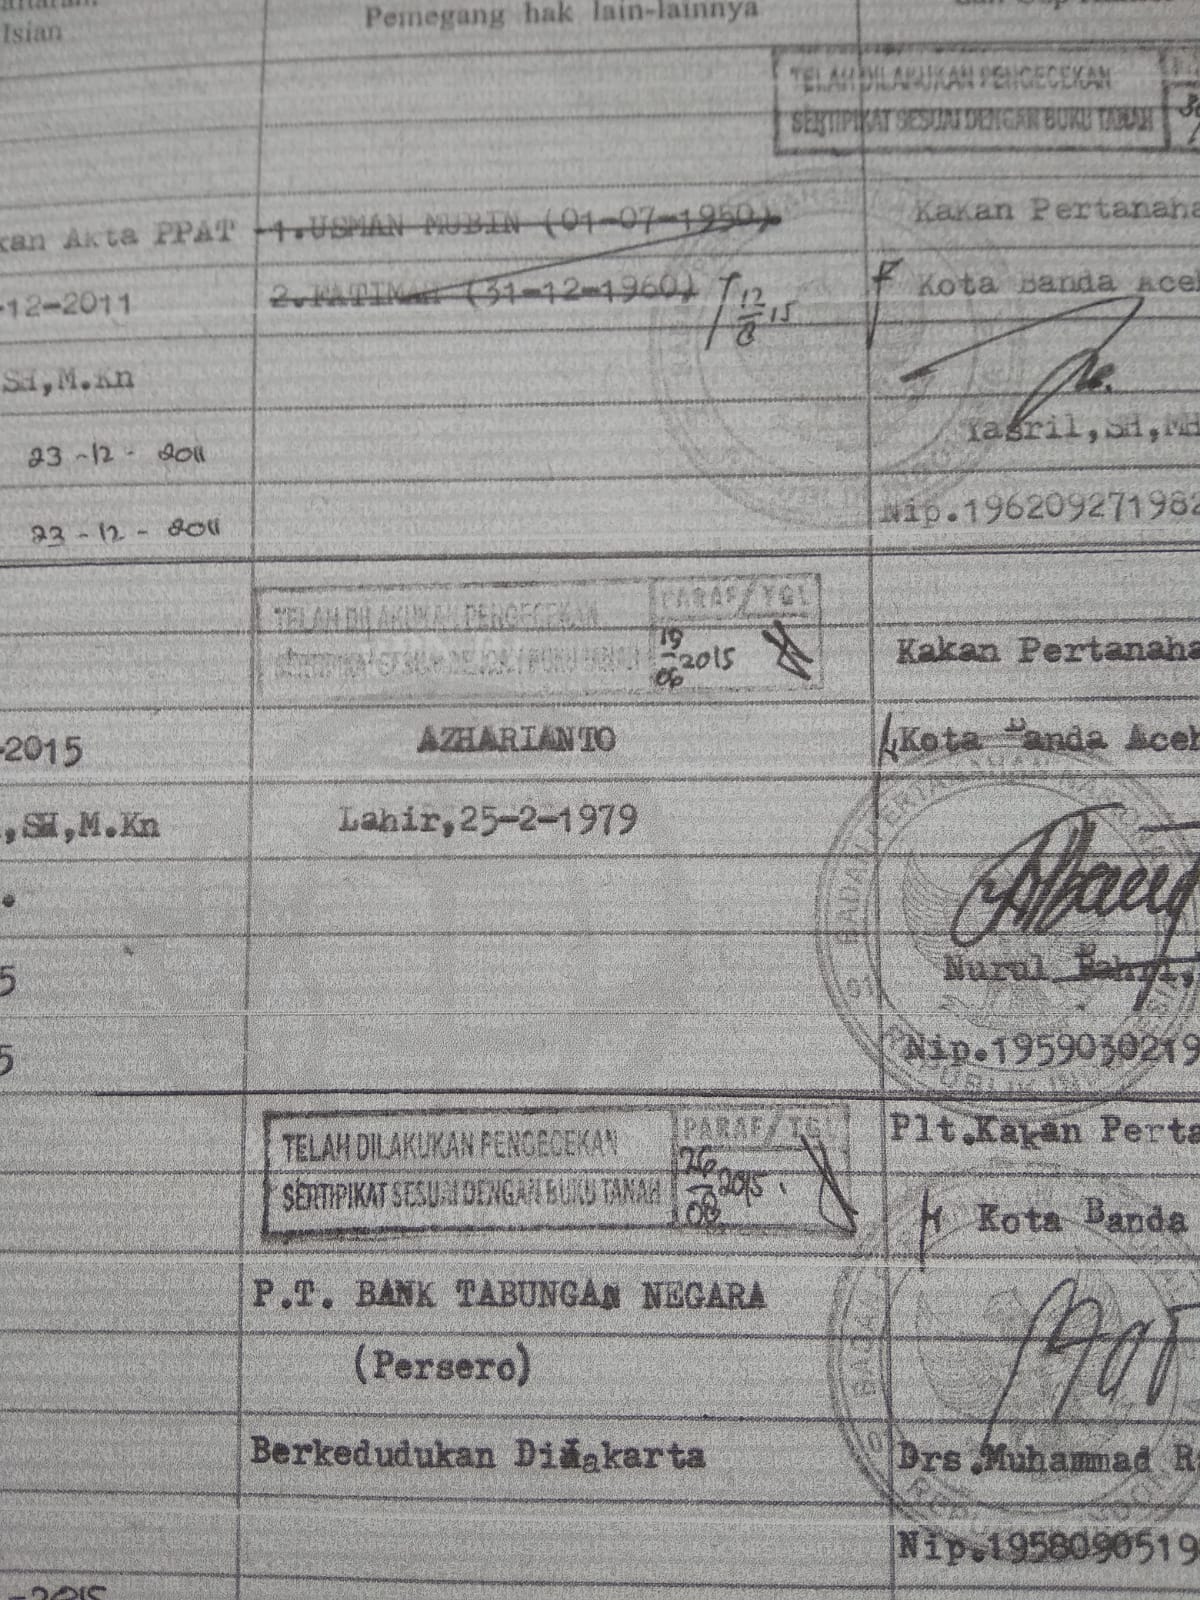 Isian
Pemegang hak lain-lainnya
TELAH DILAKUKAN PENGECEKAN
SERTIPIKAT SESUAI DENGAN BUKU TANAH
kan Akta PPAT
1.USMAN MUBIN (01-07-1950)
Kakan Pertanaha
-12-2011
2.FATIMAH (31-12-1960)
12/8 15
Kota Banda Aceh
SH,M.Kn
Yasril,SH,MH
23-12-2011
23-12-2011
Nip.196209271982
TELAH DILAKUKAN PENGECEKAN
SERTIPIKAT SESUAI DENGAN BUKU TANAH
PARAF/TGL
19/06 2015
Kakan Pertanaha
-2015
AZHARIANTO
Kota Banda Aceh
,SH,M.Kn
Lahir,25-2-1979
BADAN PERTANAHAN NASIONAL
REPUBLIK INDONESIA
01
5
Nurul Bahri,
5
Nip.1959030219
TELAH DILAKUKAN PENGECEKAN
SERTIPIKAT SESUAI DENGAN BUKU TANAH
PARAF/TGL
26/08 2015.
Plt.Kakan Perta
Kota Banda
P.T. BANK TABUNGAN NEGARA
(Persero)
Berkedudukan DiJakarta
Drs.Muhammad R
Nip.1958090519
-2015